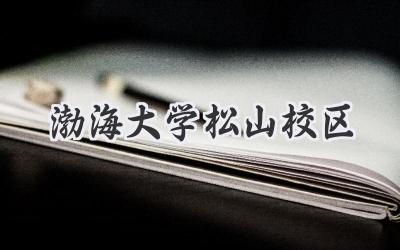 渤海大学松山校区